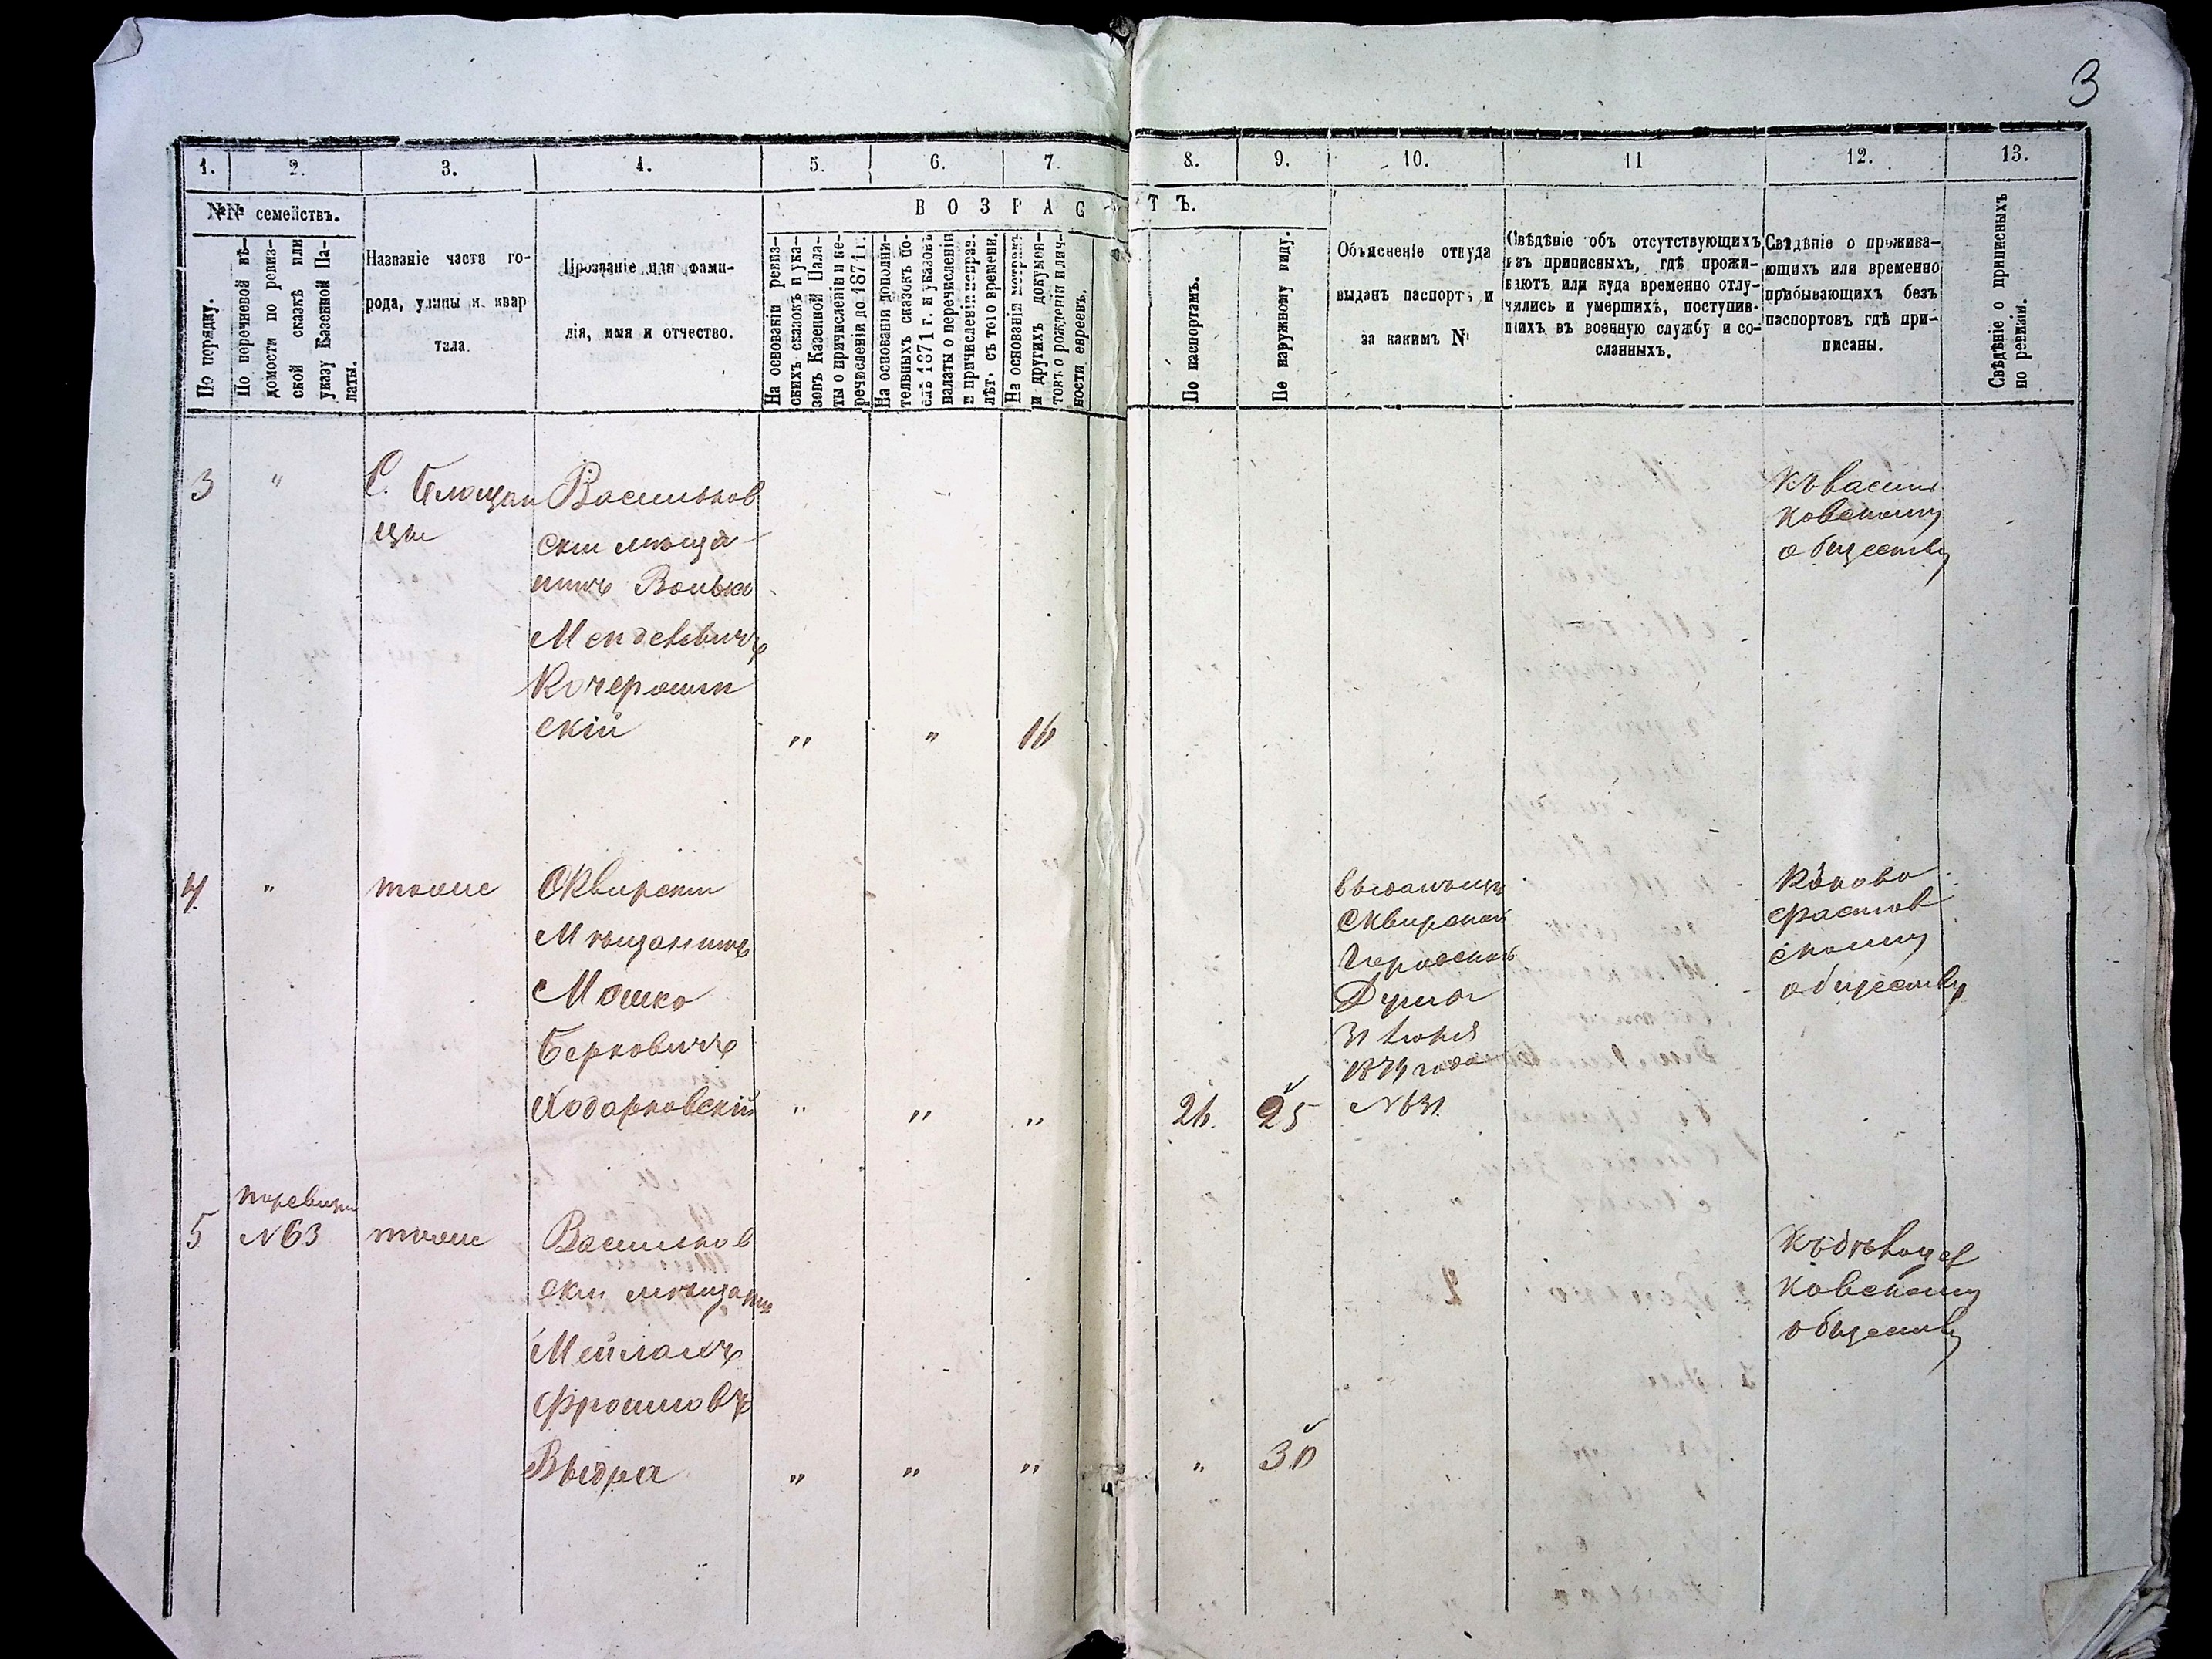 3
1.
2.
3.
4.
5.
6.
7.
8.
9.
10.
11
12.
13.
№№ семействъ.
ВОЗРАСТЪ.
По порядку.
По перечневой вѣ-
домости по ревиз-
ской сказкѣ или
указу Казенной Па-
латы.
Названіе части го-
рода, улицы и квар
тала
Прозваніе или фами-
лія, имя и отчество.
На основаніи ревиз-
скихъ сказокъ и ука-
зовъ Казенной Пала-
ты о причисленіи и пе-
речисленіи до 1871 г.
На основаніи дополни-
тельныхъ сказокъ по-
слѣ 1871 г. и указовъ
палаты о перечисленіи
и причисленіи исправ.
лѣт. съ того времени.
На основаніи метрикъ
и другихъ докумен-
товъ о рожденіи и лич-
ности евреевъ.
По паспортамъ.
По наружному виду.
Объясненіе откуда
выданъ паспортъ и
за какимъ №
Свѣдѣніе объ отсутствующихъ
изъ приписныхъ, гдѣ прожи-
ваютъ или куда временно отлу-
чились и умершихъ, поступив-
шихъ въ военную службу и со-
сланныхъ.
Свѣдѣніе о прожива-
ющихъ или временно
прибывающихъ безъ
паспортовъ гдѣ при-
писаны.
Свѣдѣніе о приписныхъ
по ревизіи.
3 " С. Блощин Васильков
цы
ски мѣща-
нинъ Волько
Менделевичъ
Кочерошин
скій " " 16
Къ Василь
ковскому
обществу
4 " тоже Сквирски
Мѣщанинъ
Мошко
Берковичъ
Ходорковскій " " " 26. 25
Сквирской
Городской
Думы
31 Іюня
1874 года
№ 631
Къ ново
фастов
скому
обществу
по ревизи
5 № 63 тоже Васильков
ски мѣщанин
Мейлахъ
Фроимовъ
Выдра " " " " 30
ковскому
обществу